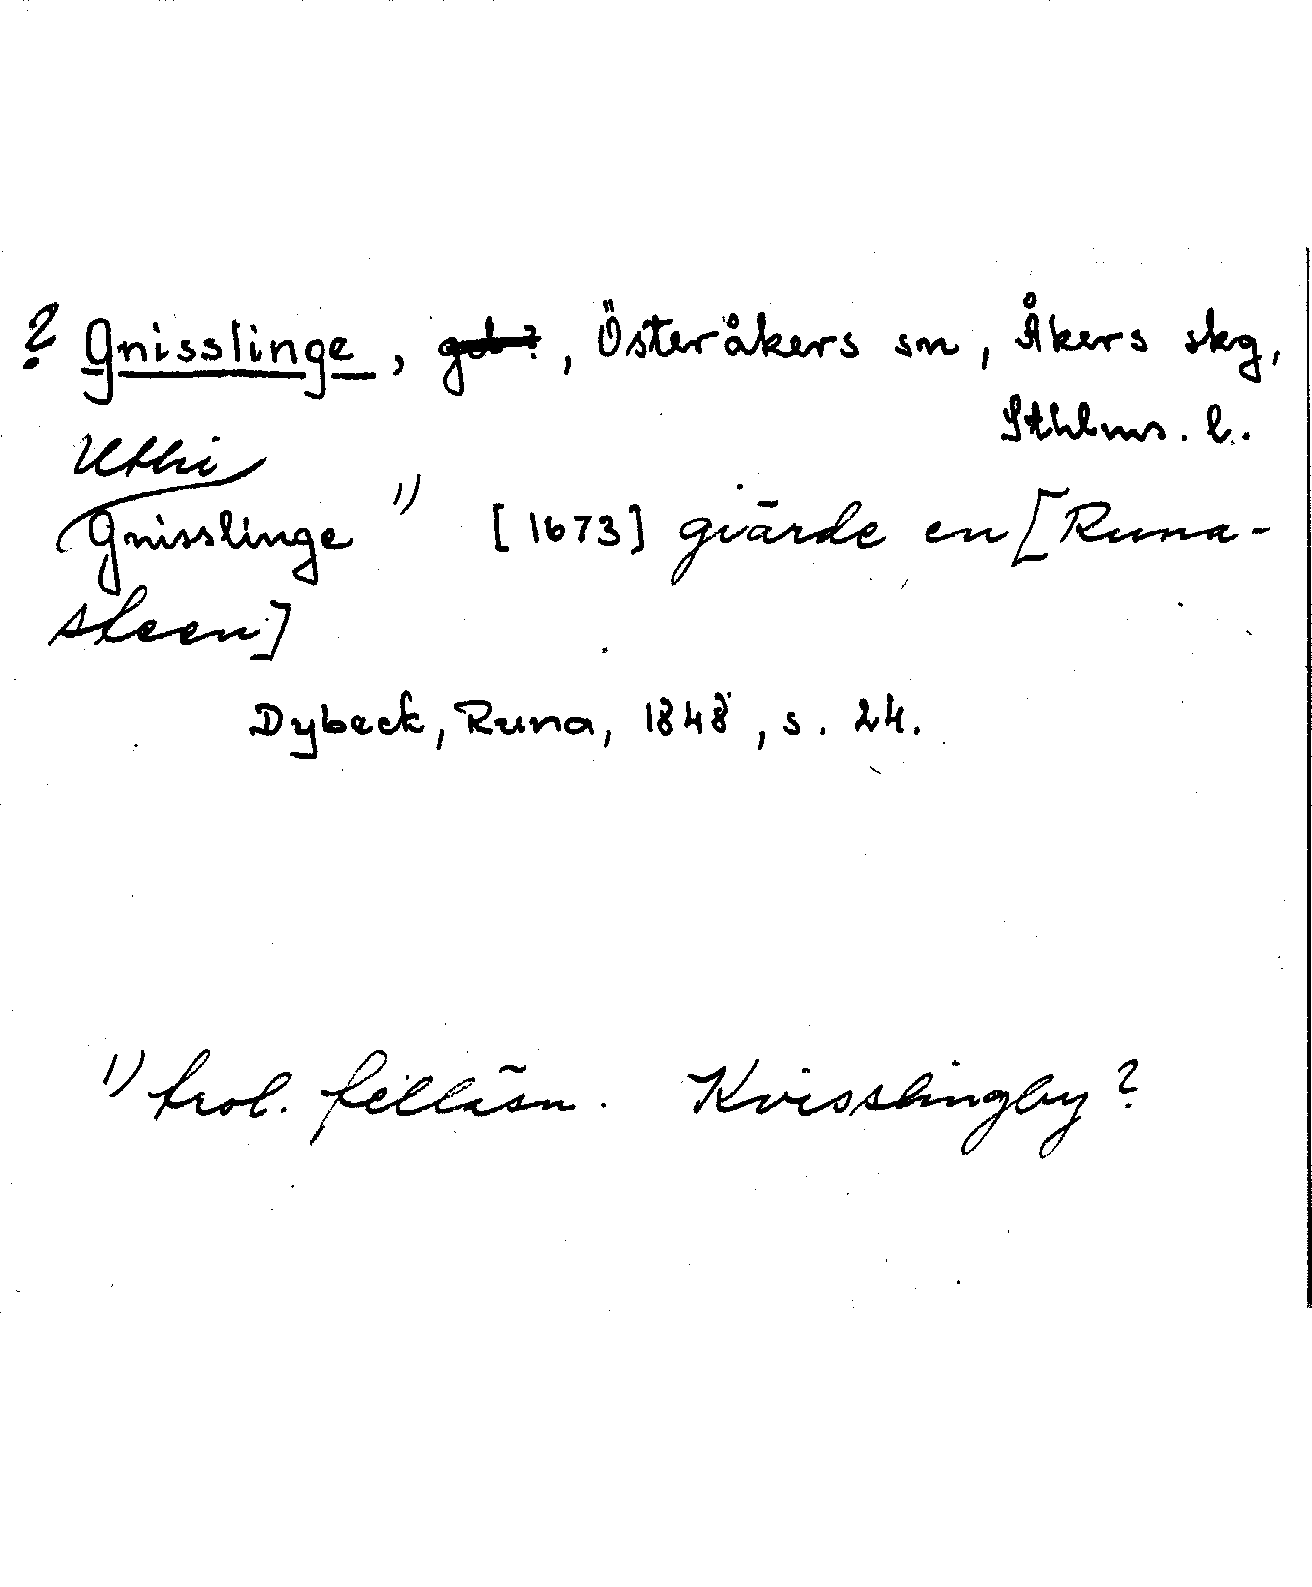 ? Gnisslinge, gd?, Österåkers sn, Åkers skg,
Sthlms. l.
Uthi
Gnisslinge 1) [1673] giärde en [Runa-
steen]
Dybeck, Runa, 1848, s. 24.
1) trol. felläsn. Kvisslingby?